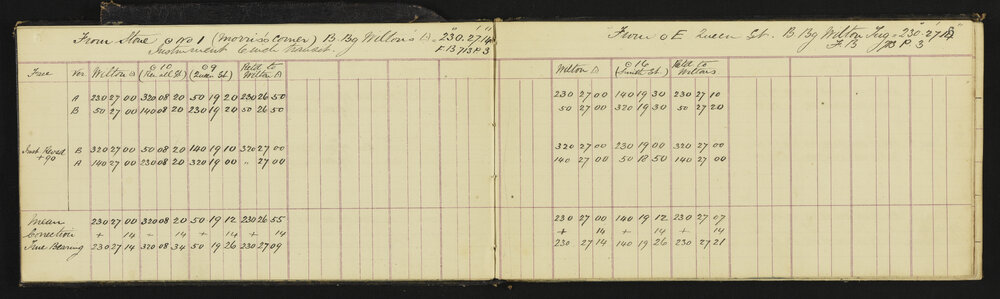 From Stone ⊙ No 1 (Morris's Corner) B. Bg Wilton's △ = 230° 27' 14"
Instrument Cuch Transit. F B 7 13 P 3
Face Ver Wilton △ ⊙ 10 (Rendall St) ⊙ 9 (Queen St) Retd to Wilton △
A 230 27 00 320 08 20 50 19 20 230 26 50
B 50 27 00 140 08 20 230 19 20 50 26 50
Inst Revsd +90 B 320 27 00 50 08 20 140 19 10 320 27 00
A 140 27 00 230 08 20 320 19 00 " 27 00
Mean 230 27 00 320 08 20 50 19 12 230 26 55
Correction + 14 + 14 + 14 + 14
True Bearing 230 27 14 320 08 34 50 19 26 230 27 09
From ⊙ E Queen St. B Bg Wilton Trig = 230° 27' 14"
F B 7 13 P 3
Wilton △ ⊙ 16 (Smith St.) Retd to Wiltons
230 27 00 140 19 30 230 27 10
50 27 00 320 19 30 50 27 20
320 27 00 230 19 00 320 27 00
140 27 00 50 18 50 140 27 00
230 27 00 140 19 12 230 27 07
+ 14 + 14 + 14
230 27 14 140 19 26 230 27 21